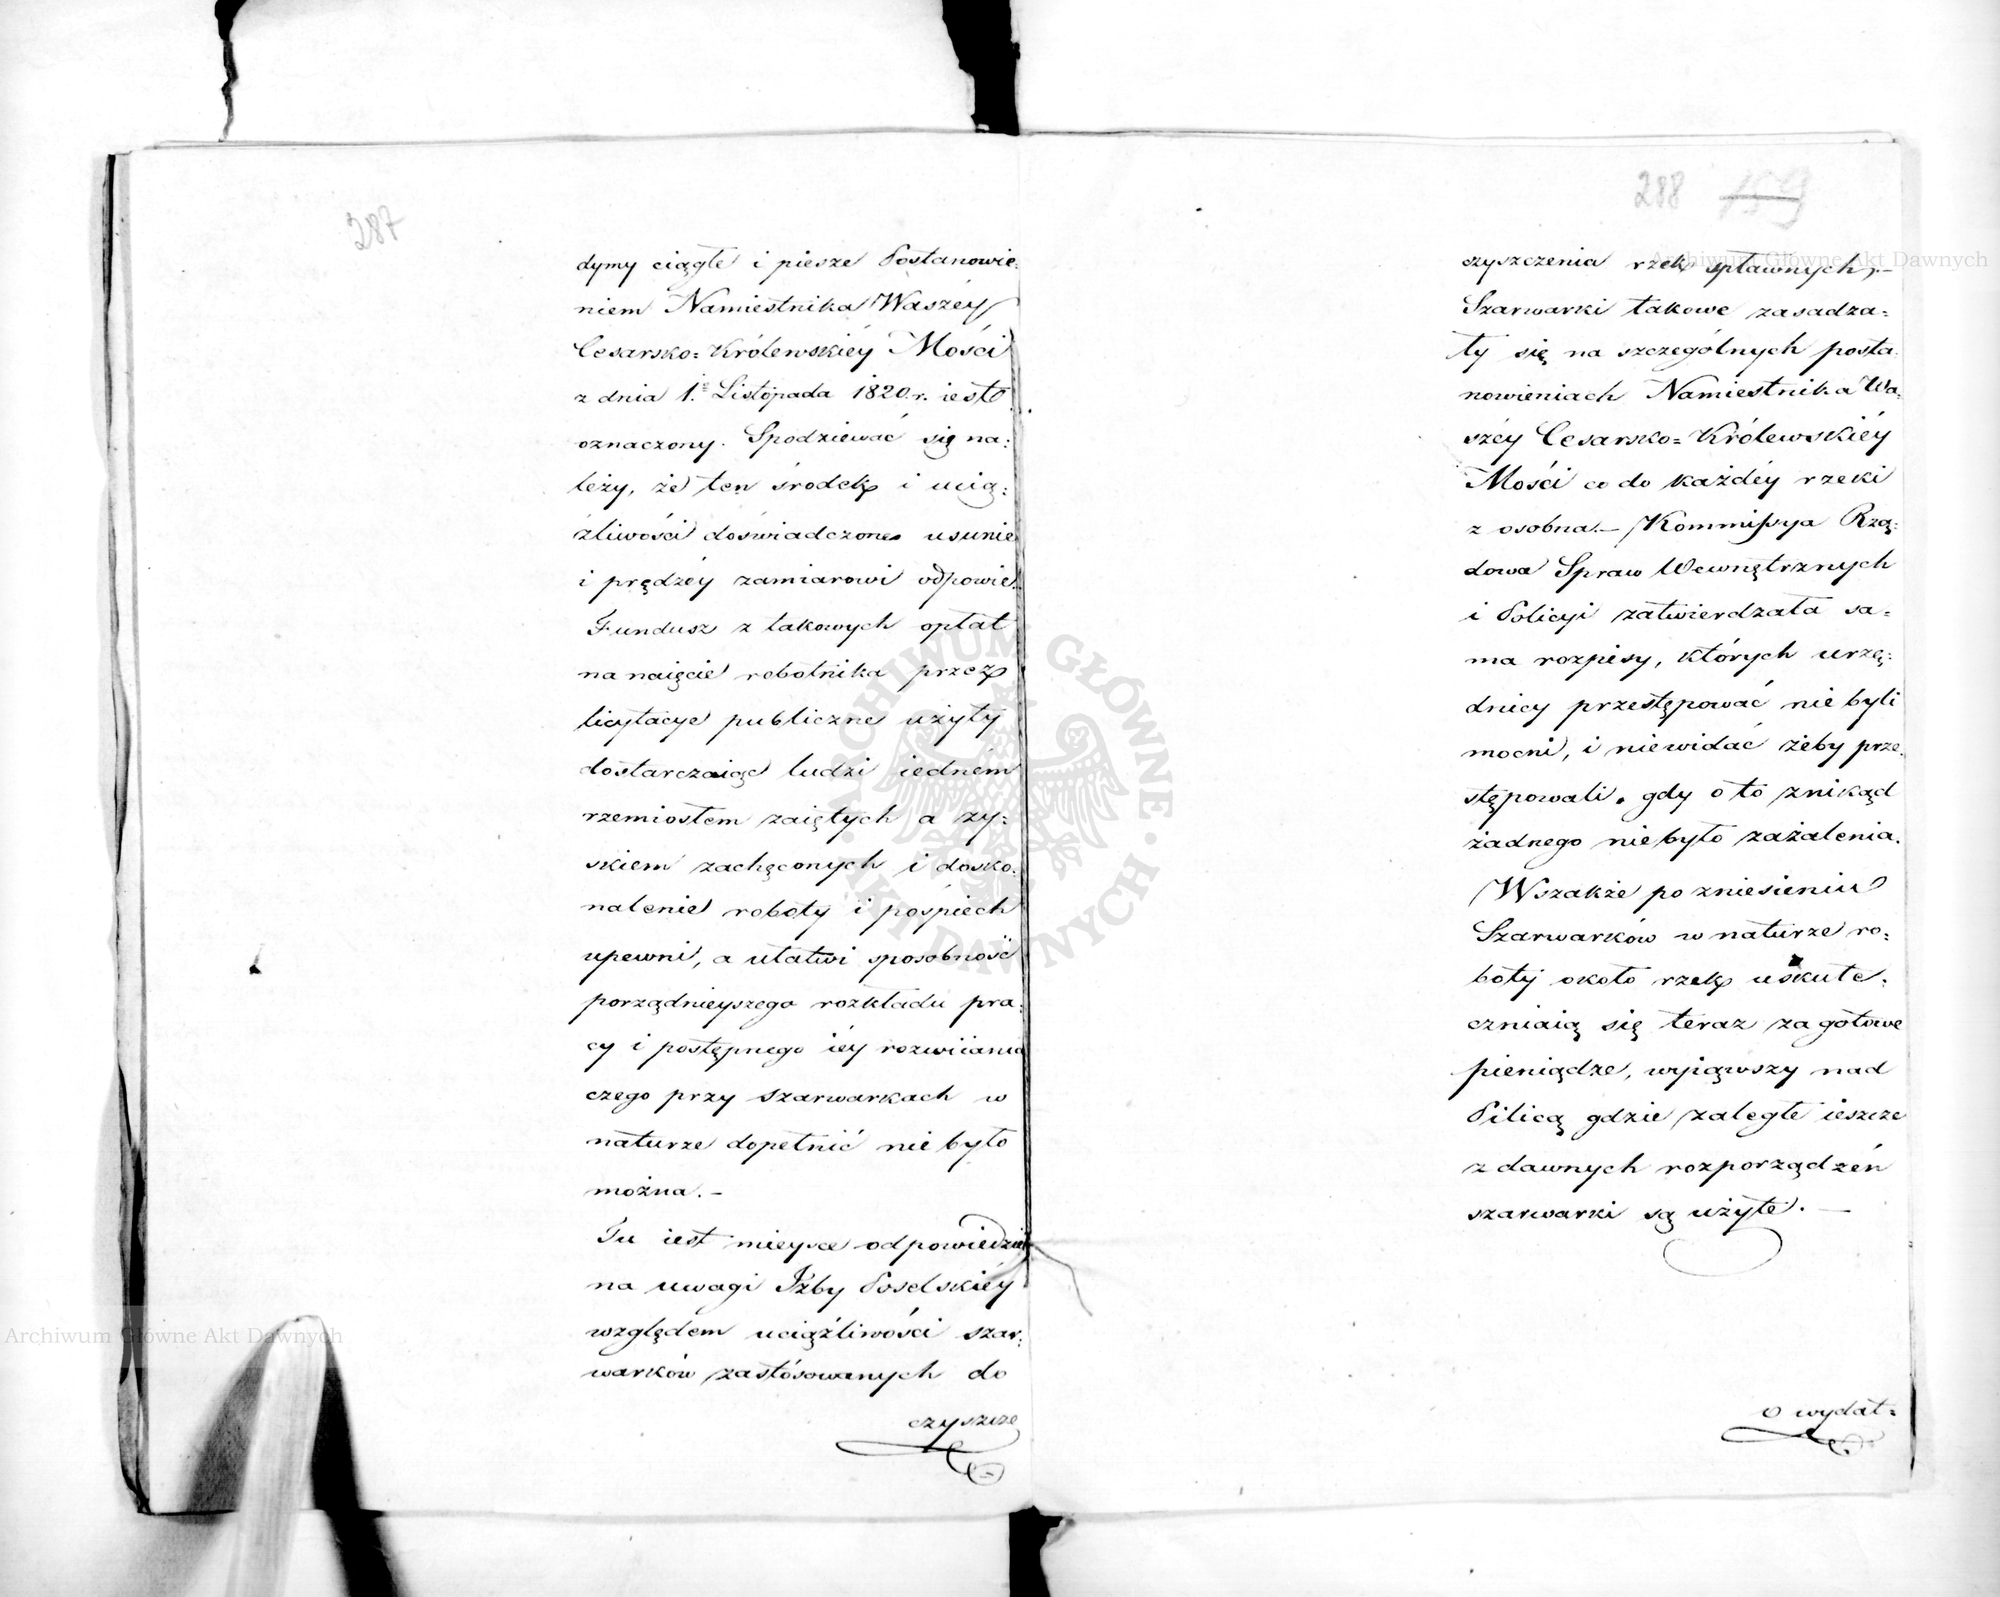 287
dymy ciągłe i piesze Postanowie:
niem Namiestnika Waszéy
Cesarsko=Królewskiéy Mości
z dnia 1go Listopada 1820.r. iest
oznaczony. Spodziewać się na:
leży, że ten środek i ucią:
żliwości doświadczone usunie
i prędzéy zamiarowi odpowie.
Fundusz z takowych opłat
na naięcie robotnika przez
licytacye publiczne użyty
dostarczaiąc ludzi iedném
rzemiosłem zaiętych a zy:
skiem zachęconych i dosko:
nalenie roboty i pośpiech
upewni, a ułatwi sposobność
porządnieyszego rozkładu pra:
cy i postępnego iéy rozwiiania
czego przy szarwarkach w
naturze dopełnić nie było
można. –
Tu iest mieysce odpowiedzieć
na uwagi Izby Poselskiéy
względem uciążliwości szar:
warków zastósowanych do
czyszcze
288 159
czyszczenia rzek spławnych, –
Szarwarki takowe zasadza:
ły się na szczególnych posta:
nowieniach Namiestnika Wa:
széy Cesarsko=Królewskiéy
Mości co do każdéy rzeki
z osobna. – Kommissya Rzą:
dowa Spraw Wewnętrznych
i Policyi zatwierdzała sa:
ma rozpisy, których urzę:
dnicy przestępować nie byli
mocni, i nie widać żeby prze:
stępowali, gdy o to znikąd
żadnego nie było zażalenia.
Wszakże po zniesieniu
Szarwarków w naturze ro:
boty około rzek uskute:
czniaią się teraz za gotowe
pieniądze, wyiąwszy nad
Pilicą gdzie zaległe ieszcze
z dawnych rozporządzeń
szarwarki są użyte. –
O wydat:
Archiwum Główne Akt Dawnych
Archiwum Główne Akt Dawnych
ARCHIWUM GŁÓWNE · AKT DAWNYCH ·